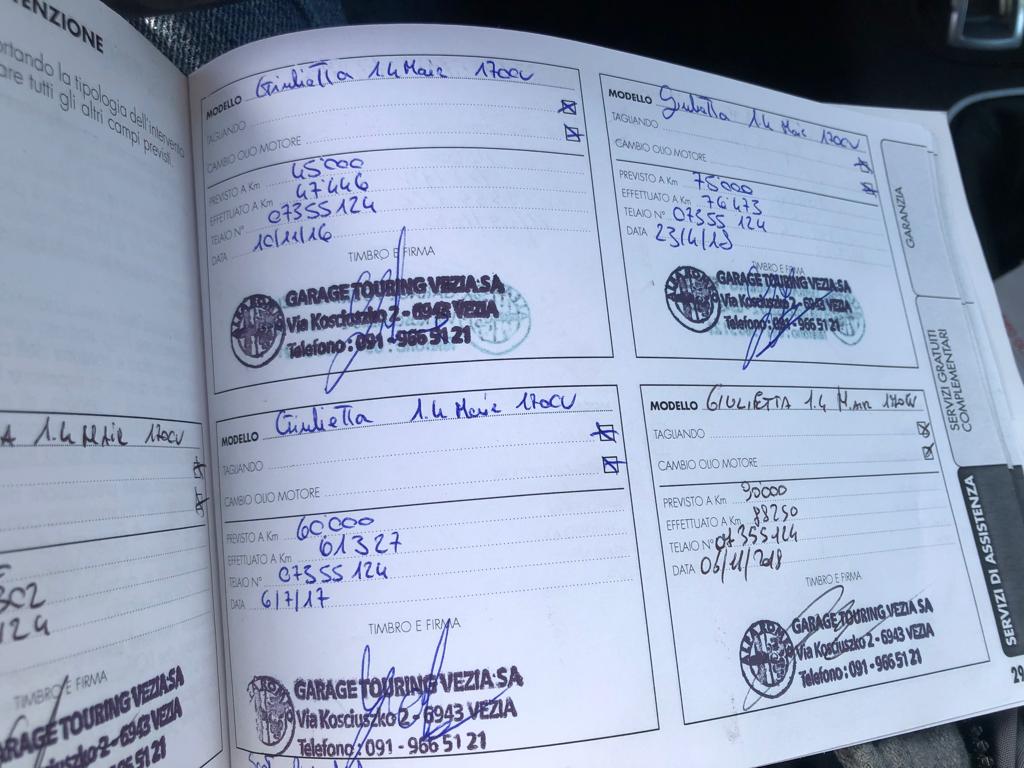 TENZIONE
ortando la tipologia dell'intervento
are tutti gli altri campi previsti.
A 1.4 MAIR 170CV
302
124
TIMBRO E FIRMA
GARAGE TOURING VEZIA SA
Kosciuszko 2 - 6943 VEZIA
091 - 966 51 21
MODELLO Giulietta 1.4 Mair 170CV
TAGLIANDO
CAMBIO OLIO MOTORE
PREVISTO A Km 45'000
EFFETTUATO A Km 47446
TELAIO N° 07355124
DATA 10/11/16
TIMBRO E FIRMA
GARAGE TOURING VEZIA SA
Via Kosciuszko 2 - 6943 VEZIA
Telefono : 091 - 966 51 21
MODELLO Giulietta 1.4 Mair 170CV
TAGLIANDO
CAMBIO OLIO MOTORE
PREVISTO A Km 60'000
EFFETTUATO A Km 61327
TELAIO N° 07355124
DATA 6/7/17
TIMBRO E FIRMA
GARAGE TOURING VEZIA SA
Via Kosciuszko 2 - 6943 VEZIA
Telefono : 091 - 966 51 21
MODELLO Giulietta 1.4 Mair 170CV
TAGLIANDO
CAMBIO OLIO MOTORE
PREVISTO A Km 75'000
EFFETTUATO A Km 76473
TELAIO N° 07355124
DATA
TIMBRO E FIRMA
GARAGE TOURING VEZIA SA
Via Kosciuszko 2 - 6943 VEZIA
Telefono : 091 - 966 51 21
MODELLO GIULIETTA 1.4 MAIR 170CV
TAGLIANDO
CAMBIO OLIO MOTORE
PREVISTO A Km 90'000
EFFETTUATO A Km 88250
TELAIO N° 07355124
DATA 06/11/2018
TIMBRO E FIRMA
GARAGE TOURING VEZIA SA
Via Kosciuszko 2 - 6943 VEZIA
Telefono : 091 - 966 51 21
GARANZIA
SERVIZI GRATUITI
COMPLEMENTARI
SERVIZI DI ASSISTENZA
29